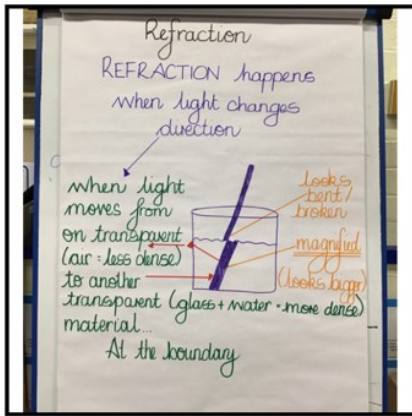 Refraction
REFRACTION happens
when light changes
direction
when light
moves from
on transparent
(air = less dense)
to another
transparent (glass + water = more dense)
material...
At the boundary
looks
bent/
broken
magnified
(looks bigger)